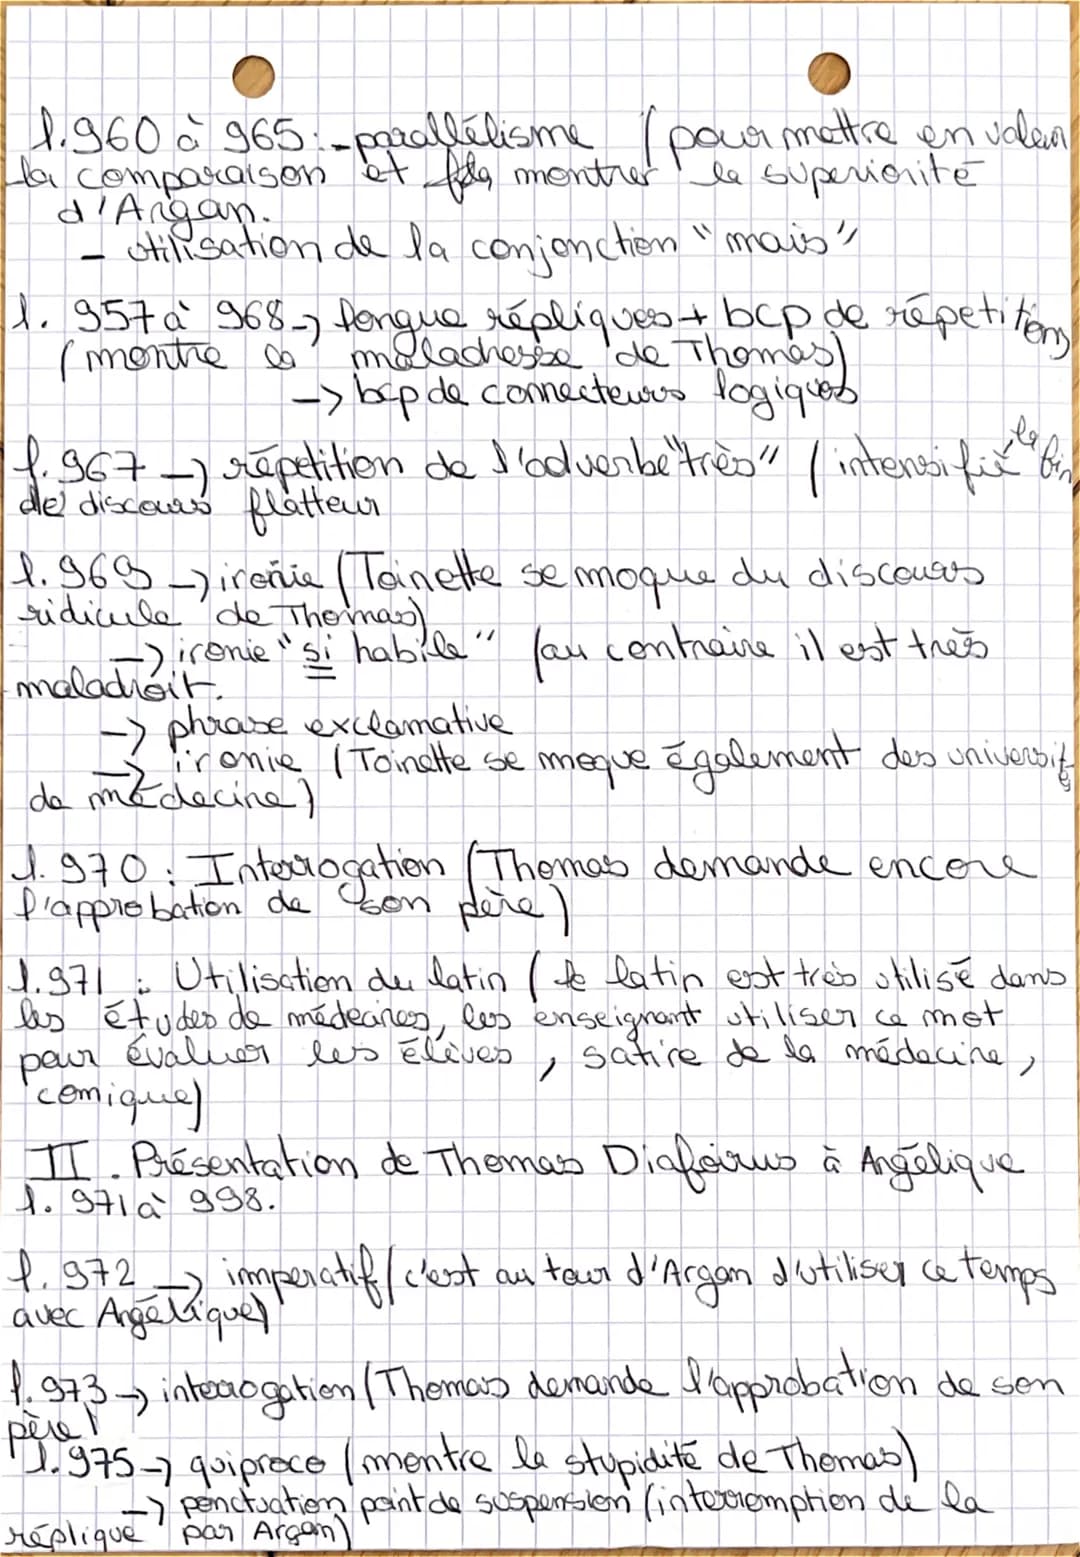 l.960 à 965:-parallélisme (pour mettre en valeur
la comparaison et montrer la supériorité
d'Argan.
- utilisation de la conjonction "mais"
l. 957 à 968 → longue répliques + bcp de répetitions
(montre la maladresse de Thomas)
→ bcp de connecteurs logiques
l.967 → répétition de l'adverbe "très" (intensifié la fin
de discours flatteur
l.969 → ironie (Toinette se moque du discours
ridicule de Thomas)
→ ironie "si habile" (au contraire il est très
maladroit.
→ phrase exclamative
→ ironie (Toinette se moque également des université
de médecine)
l.970 : Interrogation (Thomas demande encore
l'approbation de son père)
l.971 : Utilisation du latin (le latin est très utilisé dans
les études de médecines, les enseignant utiliser ce mot
pour évaluer les élèves, satire de la médecine,
comique)
II. Présentation de Thomas Diafoirus à Angélique
l. 971 à 998.
l.972 → impératif (c'est au tour d'Argan d'utiliser ce temps
avec Angélique)
l.973 → interrogation (Thomas demande l'approbation de son
père)
l.975 → quiproco (montre la stupidité de Thomas)
→ ponctuation point de suspension (interromption de la
réplique par Argan)